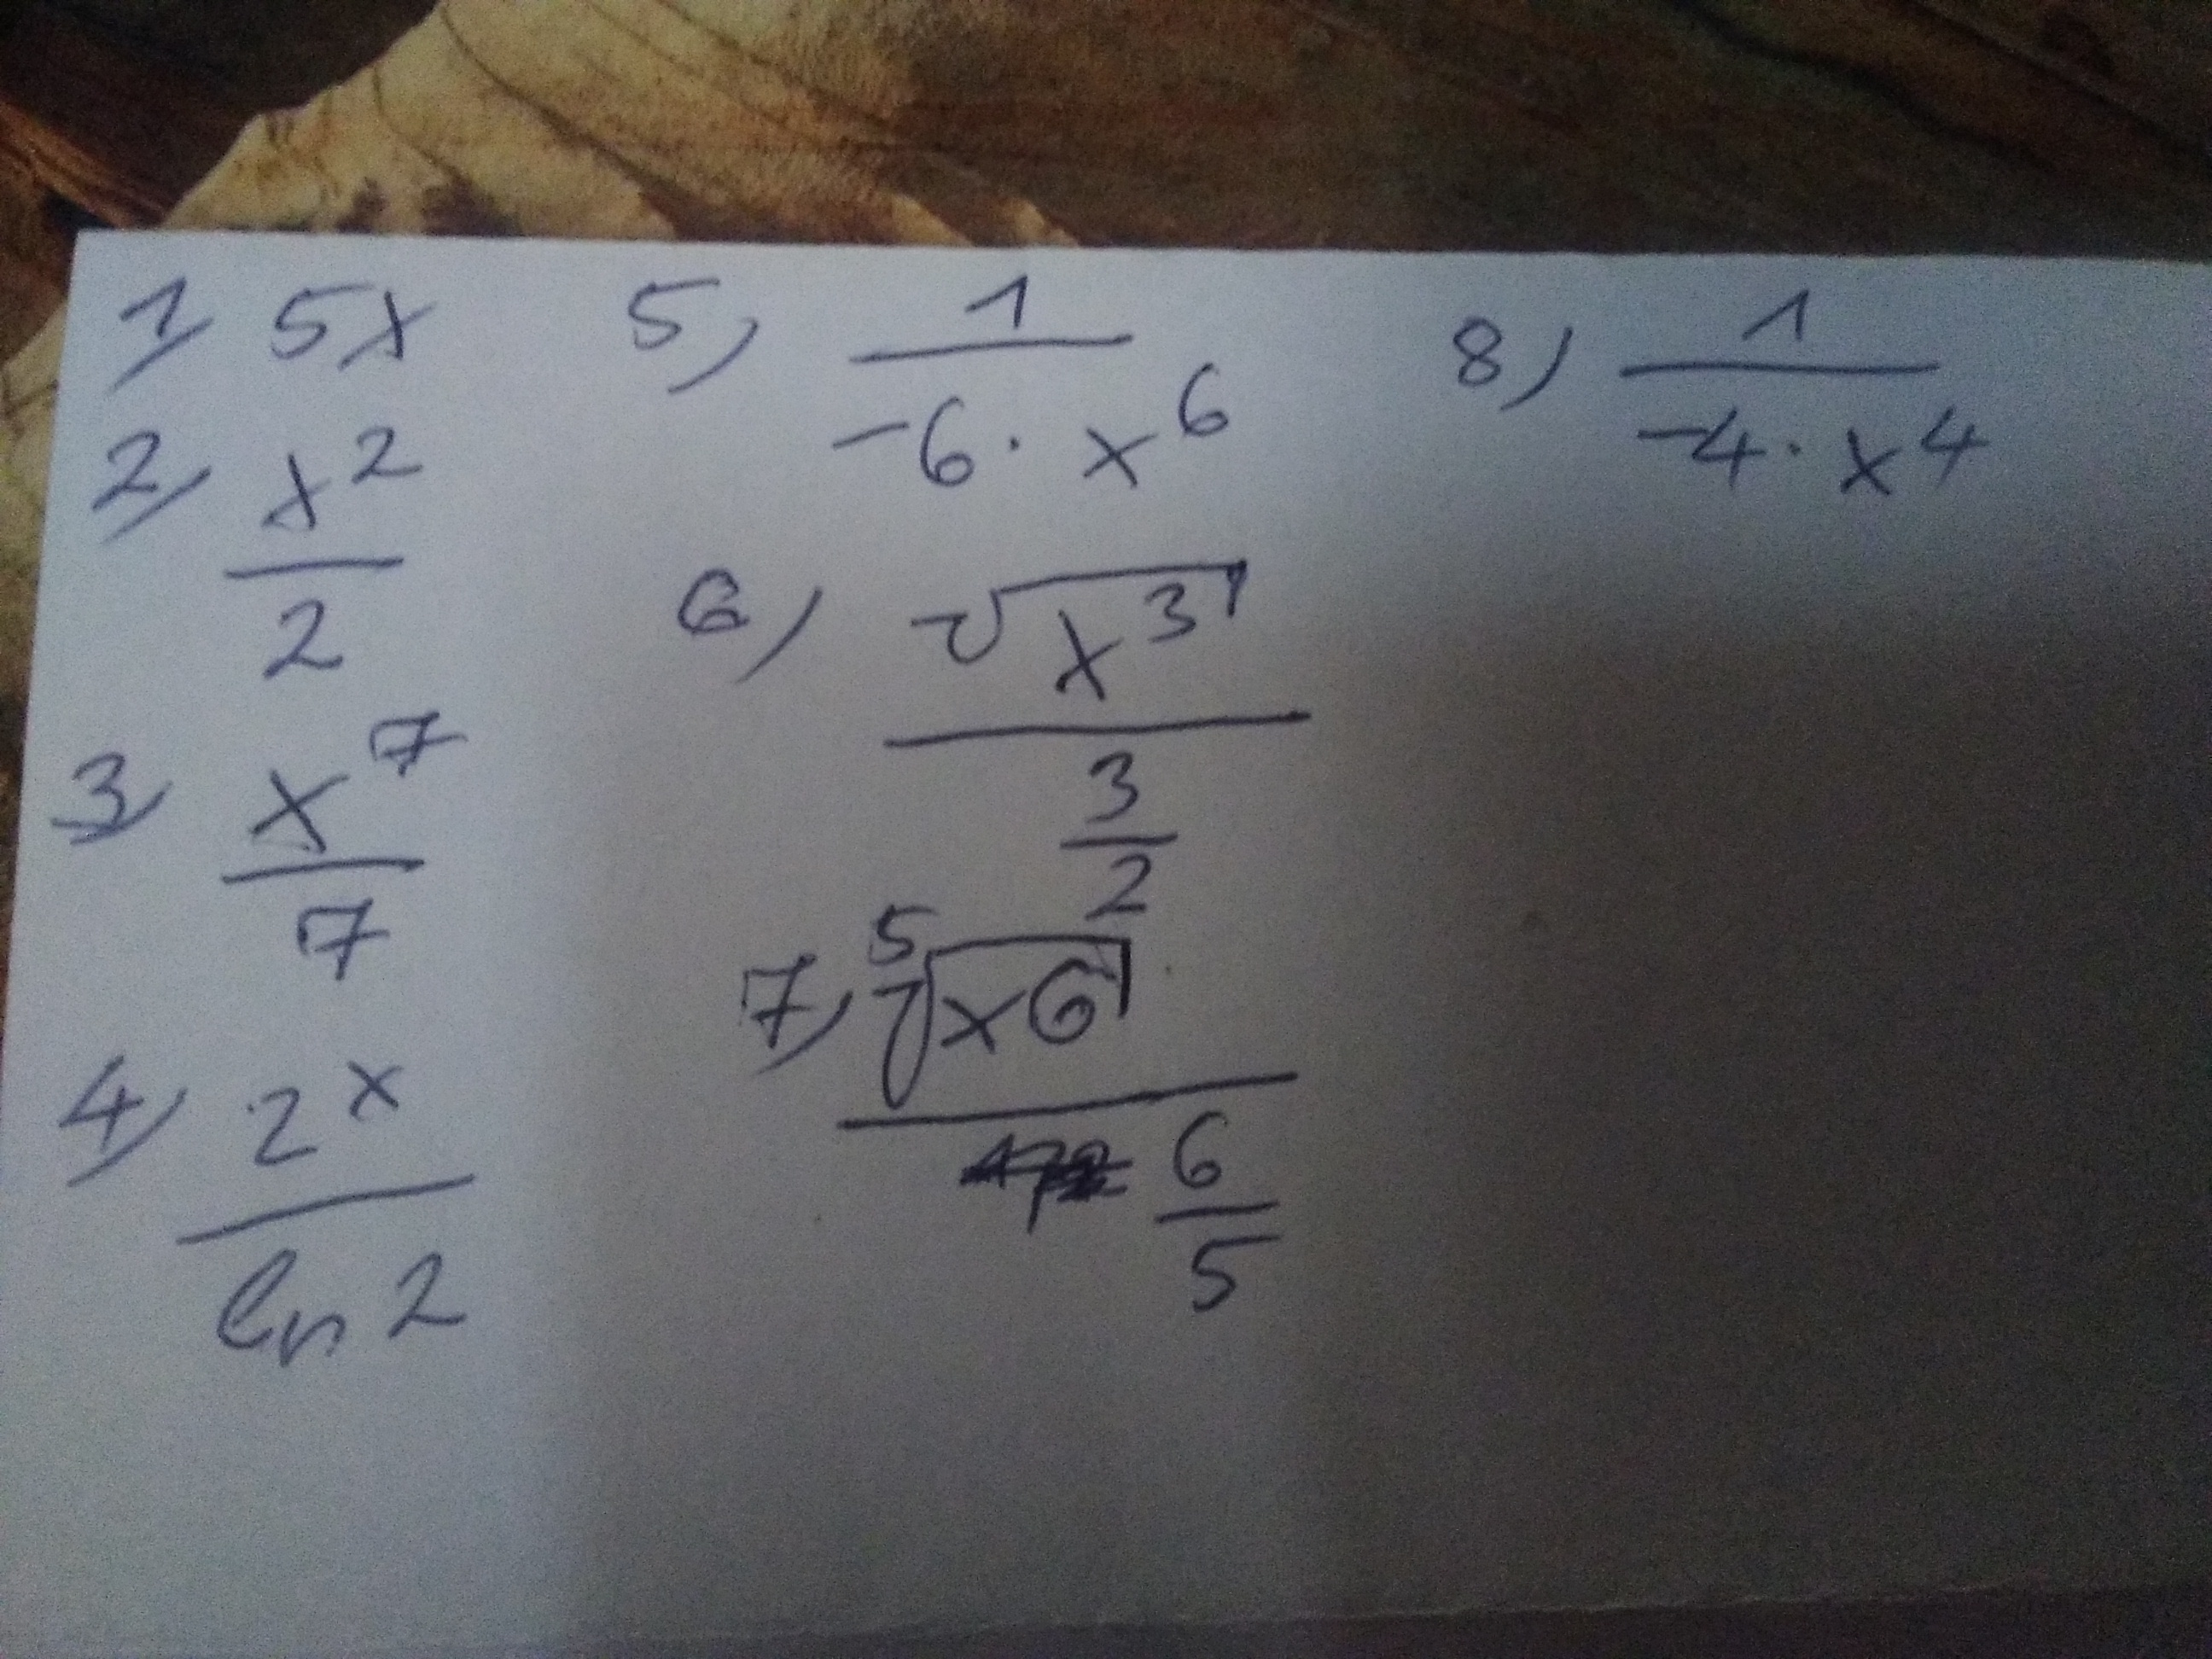 1) 5x
2) x²
2
3) x⁷
7
4) 2ˣ
ln 2
5) 1
-6 · x⁶
6) √x³
3
2
7) ⁵√x⁶
6
5
8) 1
-4 · x⁴